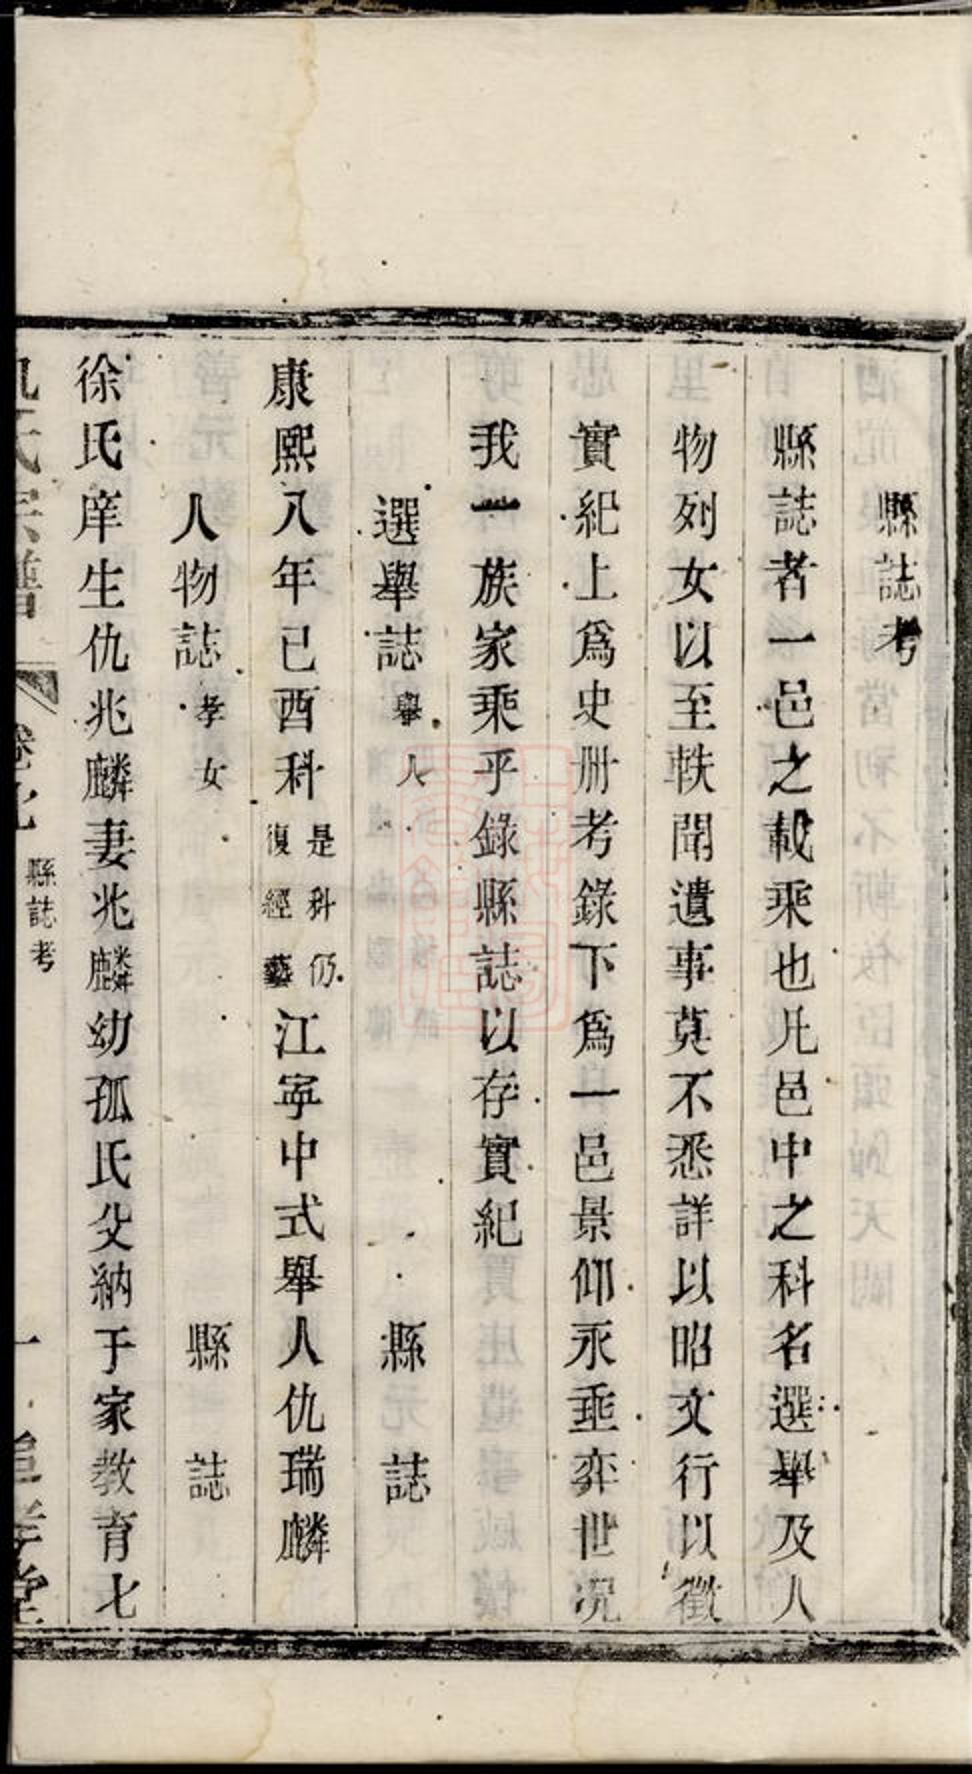 縣誌考
縣誌者一邑之載乘也凡邑中之科名選舉及人
物列女以至軼聞遺事莫不悉詳以昭文行以徵
實紀上爲史册考錄下爲一邑景仰永垂弈世况
我一族家乘乎錄縣誌以存實紀
選舉誌 舉人 縣誌
康熙八年已酉科 是科仍復經藝 江寧中式舉人仇瑞麟
人物誌 孝女 縣誌
徐氏庠生仇兆麟妻兆麟幼孤氏父納于家教育七
氏宗譜 卷之 縣誌考 一 追孝堂